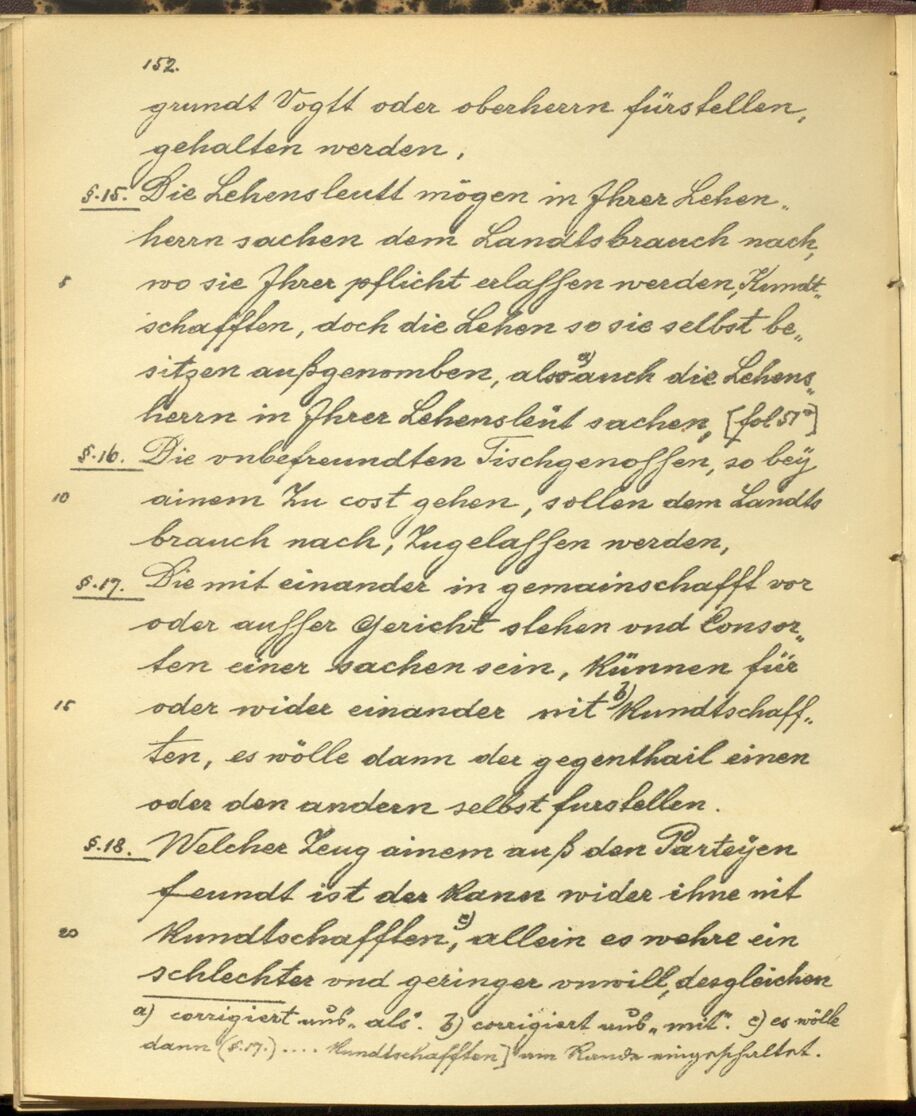 152.
grundt Vogtt oder oberherrn fürstellen,
gehalten werden,
§.15. Die Lehensleutt mögen in Ihrer Lehen„
herrn sachen dem Landtsbrauch nach,
5 wo sie Ihrer pflicht erlassen werden, Kundt„
schafften, doch die Lehen so sie selbst be„
sitzen außgenomben, also a) auch die Lehens„
herrn in Ihrer Lehensleüt sachen, [fol 51ᵛ]
§.16. Die vnbefreundten Tischgenossen, so bey
10 ainem Zu cost gehen, sollen dem Landts
brauch nach, Zugelassen werden,
§.17. Die mit einander in gemainschafft vor
oder ausser Gericht stehen vnd Consor„
ten einer sachen sein, künnen für
15 oder wider einander nit b) kundtschaff„
ten, es wölle dann der gegenthail einen
oder den andern selbst furstellen.
§.18. Welcher Zeug ainem auß den Parteÿen
feundt ist der kann wider ihne nit
20 kundtschafften, c) allein es wehre ein
schlechter vnd geringer vnwill, desgleichen
a) corrigiert aus „als“. b) corrigiert aus „mit“. c) es wölle
dann (§.17.) .... kundtschafften] am Rande eingeschaltet.